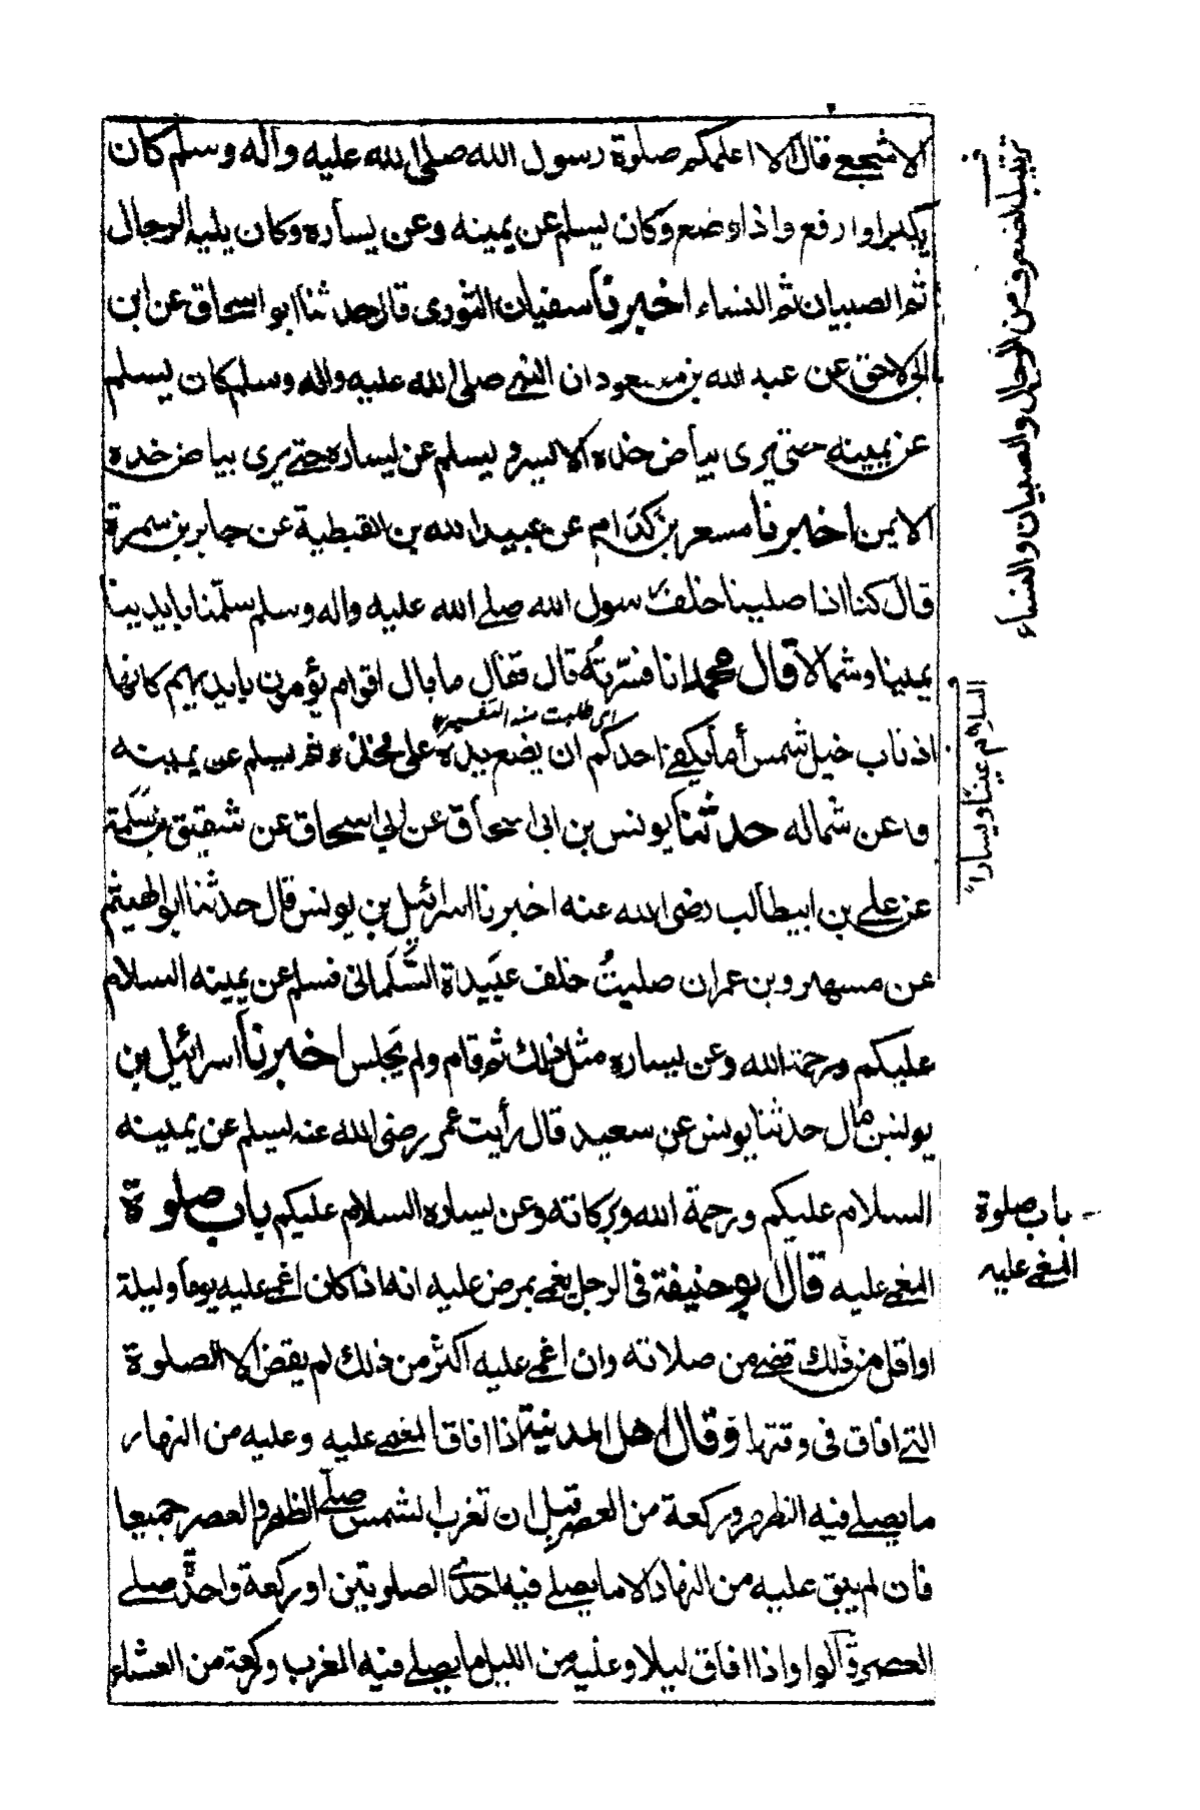 الاشجعي قال الا اعلمكم صلوة رسول الله صلى الله عليه وآله وسلم كان
يكبر اذا رفع واذا وضع وكان يسلم عن يمينه وعن يساره وكان يليه الرجال
ثم الصبيان ثم النساء اخبرنا سفيان الثوري قال حدثنا ابو اسحاق عن ابن
الاحق عن عبد الله بن مسعود ان النبي صلى الله عليه واله وسلم كان يسلم
عن يمينه حتى يرى بياض خده الايسر ويسلم عن يساره حتى يرى بياض خده
الايمن اخبرنا مسعر بن كدام عن عبيد الله بن القبطية عن جابر بن سمرة
قال كنا اذا صلينا خلف رسول الله صلى الله عليه واله وسلم سلّمنا بايدينا
يمينا وشمالا قال محمد انا فسّرتُه قال فقال ما بال اقوام يؤمون بايديهم كانها
اي طلبت منه التفسير
اذناب خيل شمس أما يكفي احدكم ان يضع يده على فخذه ثم يسلم عن يمينه
وعن شماله حدثنا يونس بن ابي اسحاق عن ابي اسحاق عن شقيق بن سلمة
عن علي بن ابيطالب رضى الله عنه اخبرنا اسرائيل بن يونس قال حدثنا ابو الهيثم
عن مسهر وبن عمران صليتُ خلف عَبَيدة السَّلماني فسلم عن يمينه السلام
عليكم ورحمة الله وعن يساره مثل ذلك ثم قام ولم يَجلس اخبرنا اسرائيل بن
يونس قال حدثنا يونس عن سعيد قال رأيت عمر رضى الله عنه يسلم عن يمينه
السلام عليكم ورحمة الله وبركاته وعن يساره السلام عليكم باب صلوة
المغمى عليه قال ابو حنيفة في الرجل يغمى بمرض عليه انه اذا كان اغمى عليه يوما وليلة
او اقل من ذلك قضى من صلاته وان اغمى عليه اكثر من ذلك لم يقض الا الصلوة
التى افاق في وقتها وقال اهل المدنية اذا افاق المغمى عليه وعليه من النهار
ما يصلى فيه الظهر وركعة من العصر قبل ان تغرب الشمس صلى الظهر والعصر جميعا
فان لم يبق عليه من النهار الا ما يصلى فيه احدى الصلوتين او ركعة واحدة صلى
العصر وقالوا واذا افاق ليلا وعليه من الليل ما يصلى فيه المغرب وركعة من العشاء
ترتيب الصفوف من الرجال والصبيان والنساء
السلام يمينا ويسارا
باب صلوة
المغمى عليه